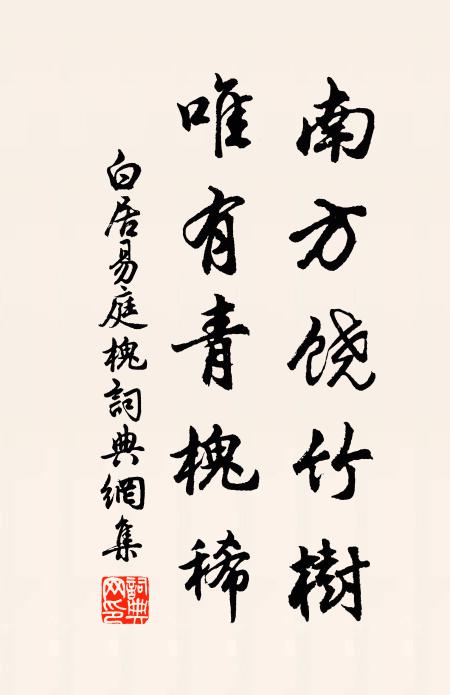 南方饶竹樹
唯有青槐稀
白居易庭槐詞典網集
詞典网印